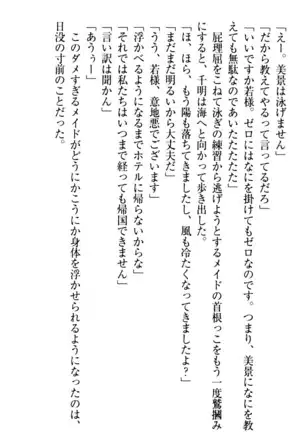 「えー。美景は泳げません」
「だから教えてやるって言ってるだろ」
「いいですか若様。ゼロにはなにを掛けてもゼロなのです。つまり、美景になにを教
えても無駄なのであいたたたたた」
　屁理屈をこねて泳ぎの練習から逃げようとするメイドの首根っこをもう一度鷲摑み
にすると、千明は海へと向かって歩き出した。
「ほ、ほら、もう陽も落ちてきましたし、風も冷たくなってきましたよ？」
「まだまだ明るいから大丈夫だ」
「うう、若様、意地悪でございます」
「浮かべるようになるまでホテルに帰らないからな」
「それでは私たちはいつまで経っても帰国できません」
「言い訳は聞かん」
「あうぅー」
　このダメすぎるメイドがどうにかこうにか身体を浮かせられるようになったのは、
日没の寸前のことだった。